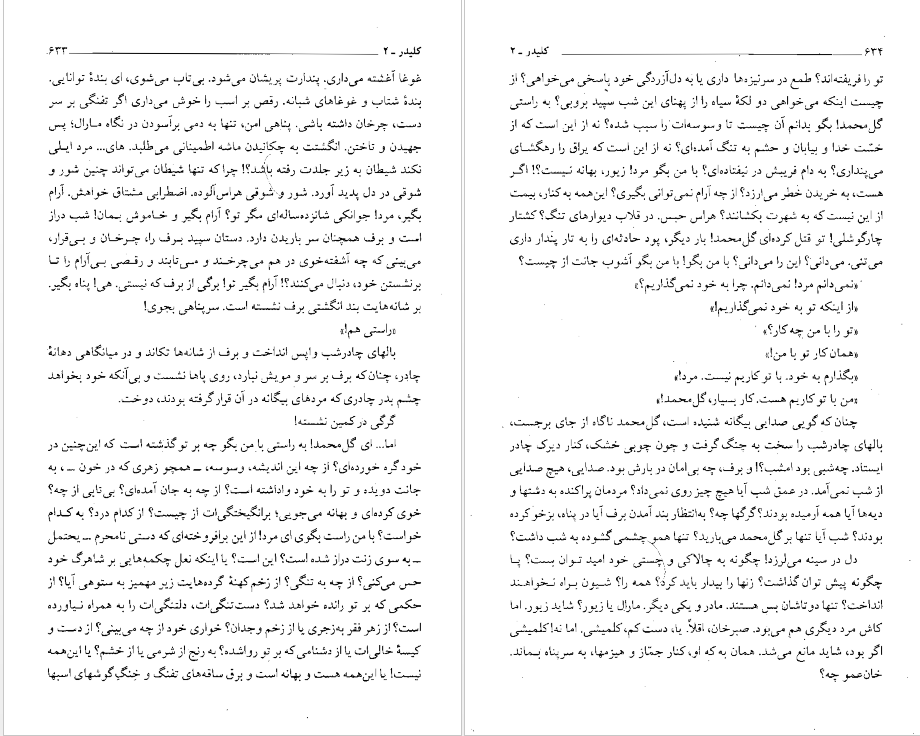 کلیدر ـ ۲ ۶۳۳
غوغا آغشته می‌داری. پندارت پریشان می‌شود. بی‌تاب می‌شوی، ای بندهٔ توانایی.
بندهٔ شتاب و غوغاهای شبانه. رقص بر اسب را خوش می‌داری اگر تفنگی بر سر
دست، چرخان داشته باشی. پناهی امن، تنها به دمی برآسودن در نگاه مارال؛ پس
جهیدن و تاختن. انگشتت به چکانیدن ماشه اطمینانی می‌طلبد. های... مرد ایلی
نکند شیطان به زیر جلدت رفته باشد؟! چرا که تنها شیطان می‌تواند چنین شور و
شوقی در دل پدید آورد. شور و شوقی هراس‌آلوده. اضطرابی مشتاق خواهش. آرام
بگیر، مرد! جوانکی شانزده‌ساله‌ای مگر تو؟ آرام بگیر و خاموش بمان! شب دراز
است و برف همچنان سر باریدن دارد. دستان سپید برف را، چرخان و بی‌قرار،
می‌بینی که چه آشفته‌خوی در هم می‌چرخند و می‌تابند و رقصی بی‌آرام را تا
برنشستن خود، دنبال می‌کنند؟! آرام بگیر تو! برگی از برف که نیستی. هی! پناه بگیر.
بر شانه‌هایت بند انگشتی برف نشسته است. سرپناهی بجوی!
«راستی هم!»
بالهای چادرشب واپس انداخت و برف از شانه‌ها تکاند و در میانگاهی دهانهٔ
چادر، چنان‌که برف بر سر و مویش نبارد، روی پاها نشست و بی‌آنکه خود بخواهد
چشم بدر چادری که مردهای بیگانه در آن قرار گرفته بودند، دوخت.
گرگی در کمین نشسته!
اما... ای گل‌محمد! به راستی با من بگو چه بر تو گذشته است که این‌چنین در
خود گره خورده‌ای؟ از چه این اندیشه، وسوسه، ـ همچو زهری که در خون ـ، به
جانت دویده و تو را به خود واداشته است؟ از چه به جان آمده‌ای؟ بی‌تابی از چه؟
خوی کرده‌ای و بهانه می‌جویی؛ برانگیختگی‌ات از چیست؟ از کدام درد؟ به کدام
خواست؟ با من راست بگوی ای مرد! از این برافروخته‌ای که دستی نامحرم ـ یحتمل
ـ به سوی زنت دراز شده است؟ این است؟ یا اینکه نعل چکمه‌هایی بر شاهرگ خود
حس می‌کنی؟ از چه به تنگی؟ از زخم کهنهٔ گرده‌هایت زیر مهمیز به ستوهی آیا؟ از
حکمی که بر تو رانده خواهد شد؟ دست‌تنگی‌ات، دلتنگی‌ات را به همراه نیاورده
است؟ از زهر فقر به‌زجری یا از زخم وجدان؟ خواری خود از چه می‌بینی؟ از دست و
کیسهٔ خالی‌ات یا از دشنامی که بر تو رواشده؟ به رنج از شرمی یا از خشم؟ یا این‌همه
نیست! یا این‌همه هست و بهانه است و برق ساقه‌های تفنگ و خِنگِ گوشهای اسبها
۶۳۴ کلیدر ـ ۲
تو را فریفته‌اند؟ طمع در سرنیزه‌ها داری یا به دل‌آزردگی خود پاسخی می‌خواهی؟ از
چیست اینکه می‌خواهی دو لکهٔ سیاه را از پهنای این شب سپید بروبی؟ به راستی
گل‌محمد! بگو بدانم آن چیست تا وسوسه‌ات را سبب شده؟ نه از این است که از
خسّت خدا و بیابان و حشم به تنگ آمده‌ای؟ نه از این است که یراق را رهگشای
می‌پنداری؟ به دام فریبش در نیفتاده‌ای؟ با من بگو مرد! زیور، بهانه نیست؟! اگر
هست، به خریدن خطر می‌ارزد؟ از چه آرام نمی‌توانی بگیری؟ این‌همه به کنار، بیمت
از این نیست که به شهرت بکشانند؟ هراس حبس. در قلاب دیوارهای تنگ؟ کشتار
چارگوشلی! تو قتل کرده‌ای گل‌محمد! بار دیگر، پود حادثه‌ای را به تار پندار داری
می‌تنی. می‌دانی؟ این را می‌دانی؟ با من بگو! با من بگو آشوب جانت از چیست؟
«نمی‌دانم مرد! نمی‌دانم. چرا به خود نمی‌گذاریم؟»
«از اینکه تو به خود نمی‌گذاریم!»
«تو را با من چه کار؟»
«همان کار تو با من!»
«بگذارم به خود. با تو کاریم نیست. مرد!»
«من با تو کاریم هست. کار بسیار، گل‌محمد!»
چنان که گویی صدایی بیگانه شنیده است، گل‌محمد ناگاه از جای برجست،
بالهای چادرشب را سخت به چنگ گرفت و چون چوبی خشک، کنار دیرک چادر
ایستاد. چه‌شبی بود امشب؟! و برف، چه بی‌امان در بارش بود. صدایی، هیچ صدایی
از شب نمی‌آمد. در عمق شب آیا هیچ چیز روی نمی‌داد؟ مردمان پراکنده به دشتها و
دیه‌ها آیا همه آرمیده بودند؟ گرگها چه؟ به‌انتظار بند آمدن برف آیا در پناه، بزخو کرده
بودند؟ شب آیا تنها بر گل‌محمد می‌بارید؟ تنها همو چشمی گشوده به شب داشت؟
دل در سینه می‌لرزد! چگونه به چالاکی و چستی خود امید توان بست؟ پا
چگونه پیش توان گذاشت؟ زنها را بیدار باید کرد؟ همه را؟ شیون براه نخواهند
انداخت؟ تنها دوتاشان بس هستند. مادر و یکی دیگر. مارال یا زیور؟ شاید زیور. اما
کاش مرد دیگری هم می‌بود. صبرخان، اقلاً. یا، دست کم، کلمیشی. اما نه! کلمیشی
اگر بود، شاید مانع می‌شد. همان به که او، کنار جمّاز و هیزمها، به سرپناه بماند.
خان‌عمو چه؟